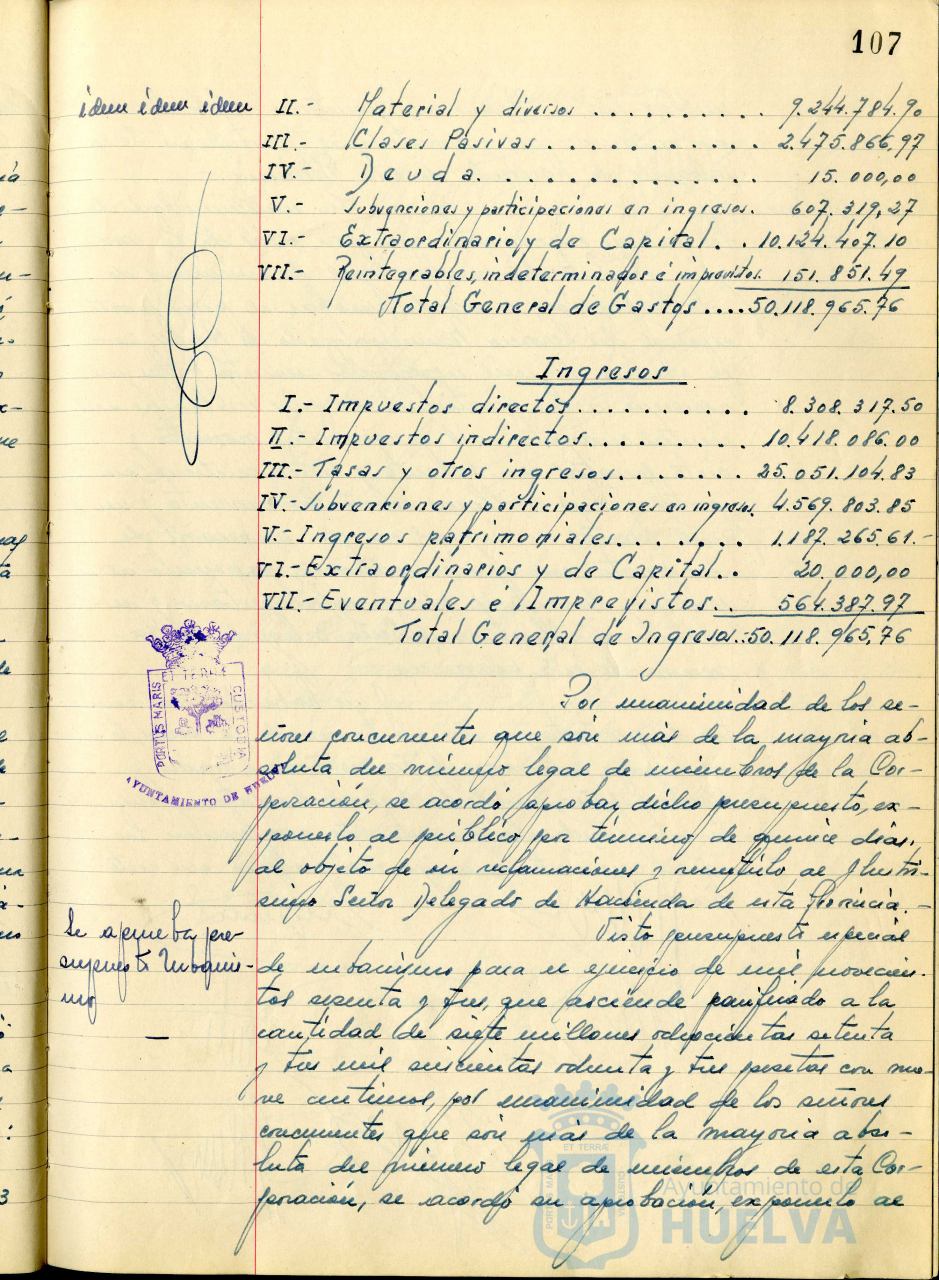 107
idem idem idem
II.- Material y diversos .......... 9.244.784.90
III.- Clases Pasivas ........... 2.475.866,97
IV.- Deuda. ............. 15.000,00
V.- Subvenciones y participaciones en ingresos. 607.319,27
VI.- Extraordinario y de Capital. . 10.124.407.10
VII.- Reintegrables, indeterminados é imprevistos. 151.851.49
Total General de Gastos .... 50.118.965.76
Ingresos
I.- Impuestos directos.......... 8.308.317.50
II.- Impuestos indirectos......... 10.418.086.00
III.- Tasas y otros ingresos....... 25.051.104.83
IV.- Subvenciones y participaciones en ingresos. 4.569.803.85
V.- Ingresos patrimoniales....... 1.187.265.61.-
VI.- Extraordinarios y de Capital.. 20.000,00
VII.- Eventuales é Imprevistos.. 564.387.97
Total General de Ingresos.: 50.118.965,76
PORTUS MARIS ET TERRÆ CUSTODIA
AYUNTAMIENTO DE HUELVA
Por unanimidad de los se-
ñores concurrentes que son más de la mayoria ab-
soluta del número legal de miembros de la Cor-
poración, se acordó aprobar dicho presupuesto, ex-
ponerlo al público por término de quince días,
al objeto de oir reclamaciones y remitirlo al Ilustrí-
simo Señor Delegado de Hacienda de esta Provincia.-
Se aprueba pre-
supuesto Urbanis-
mo
Visto presupuesto especial
de urbanismo para el ejercicio de mil novecien-
tos sesenta y tres, que asciende a la
cantidad de siete millones ochocientas setenta
y tres mil seiscientas ochenta y tres pesetas con nue-
ve centimos, por unanimidad de los señores
concurrentes que son más de la mayoria abso-
luta del número legal de miembros de esta Cor-
poración, se acordó su aprobación, exponerlo al
Ayuntamiento de
HUELVA